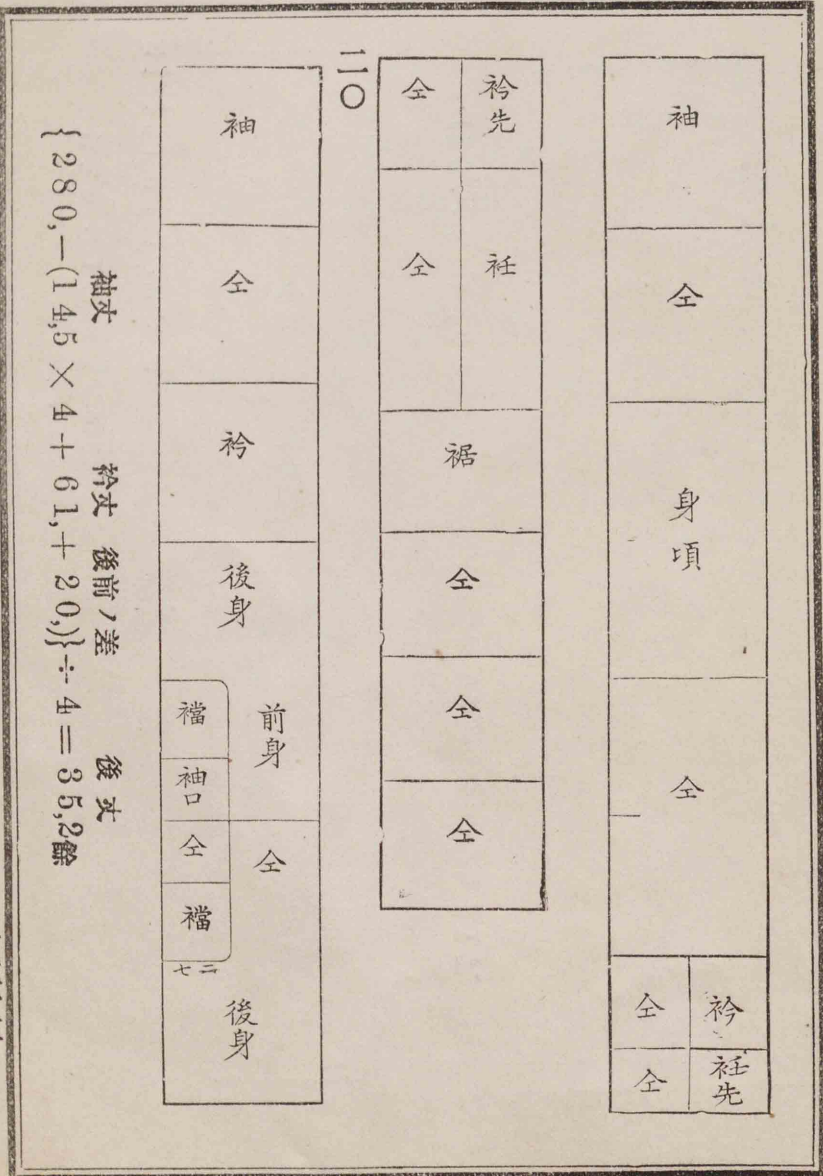 袖
仝
身頃
仝
衿 仝
衽先 仝
衿先 仝
衽 仝
裾
仝
仝
仝
二〇
袖
仝
衿
後身
前身
襠
袖口
仝
仝
襠
七二
後身
袖丈 衿丈 後前ノ差 後丈
{280,−(14,5×4+61,+20,)}÷4=35,2餘